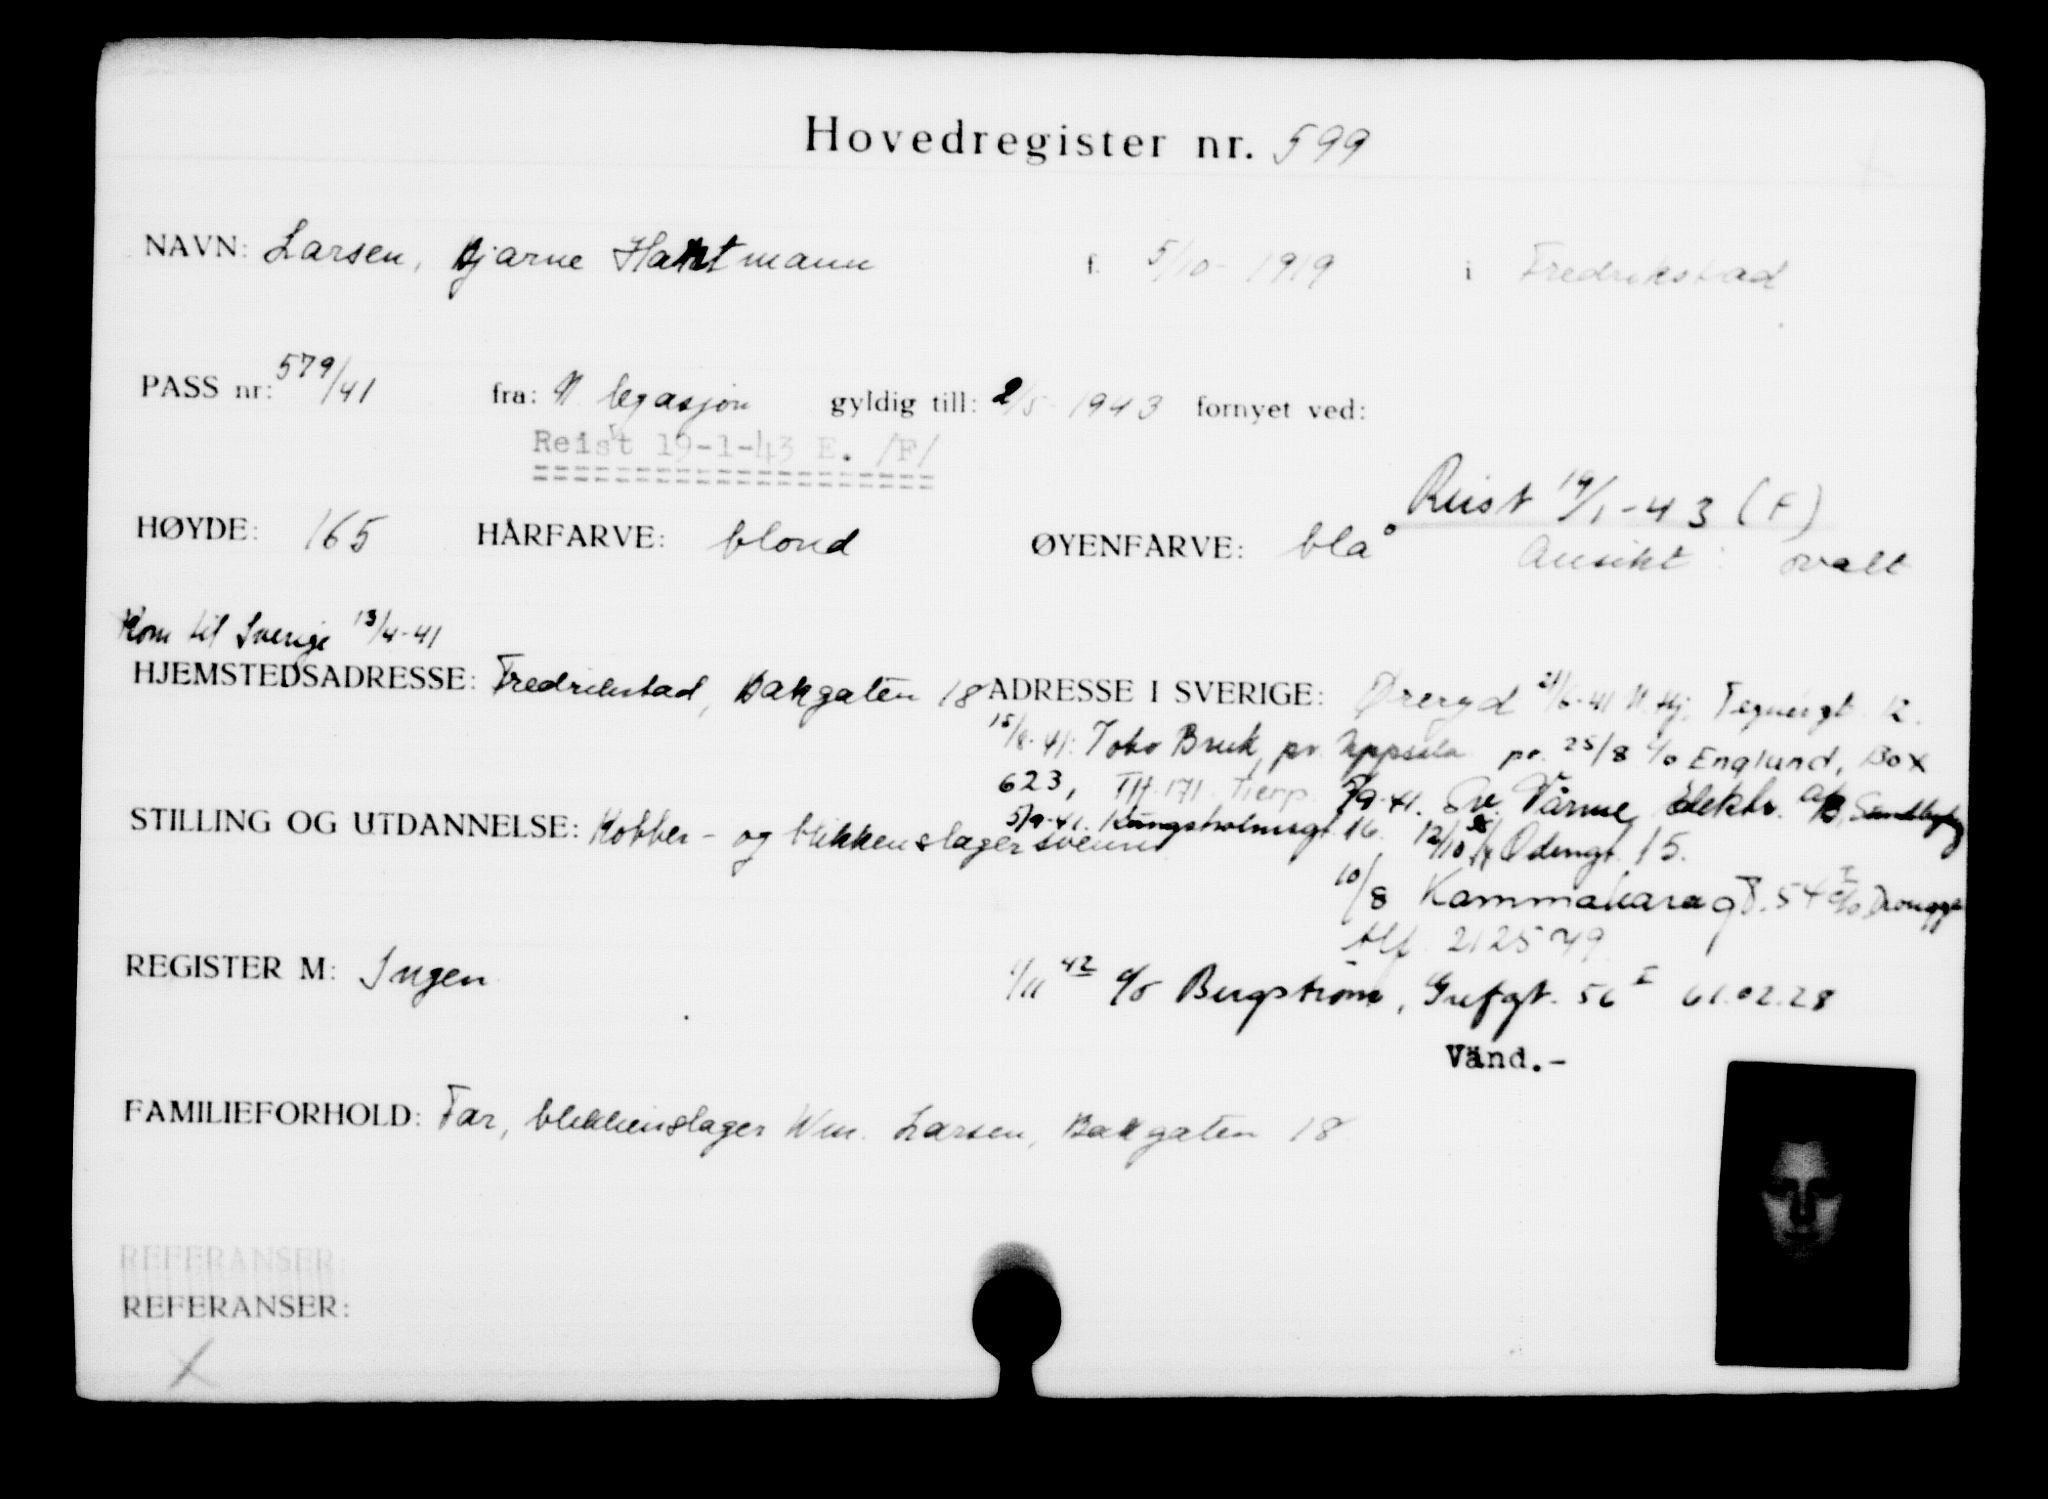 Hovedregister nr. 599
NAVN: Larsen, Bjarne Hartmann f. 5/10-1919 i Fredrikstad
PASS nr: 579/41 fra: N legasjon gyldig till: 2/5 1943 fornyet ved:
Reist 19-1-43 E. /F/
Reist 19/1-43 (F)
HØYDE: 165 HÅRFARVE: blond ØYENFARVE: blå Ansikt: ovalt
Kom til Sverige 13/4-41
HJEMSTEDSADRESSE: Fredrikstad, Bakgaten 18 ADRESSE I SVERIGE: Øreryd 21/6-41 N. Hj. Tegnérgt. 12.
15/8-41: Tobo Bruk, pr. Uppsala pr. 25/8 c/o Englund, Box
623, Tlf. 171. Tierp. 7/9-41. Sv. Värme Elektr. A/B,
STILLING OG UTDANNELSE: Kobber- og blikkenslagersvenn
5/9-41. Kungsholmsgt. 16. 12/10 Odengt. 15.
10/8 Kammakaregt. 54 I c/o
tlf. 212579.
REGISTER M: Ingen
1/11 42 c/o Bergström, Grefgt. 56 I 61.02.28
Vänd.-
FAMILIEFORHOLD: Far, blikkenslager Wm. Larsen, Bakgaten 18
REFERANSER:
REFERANSER:
X